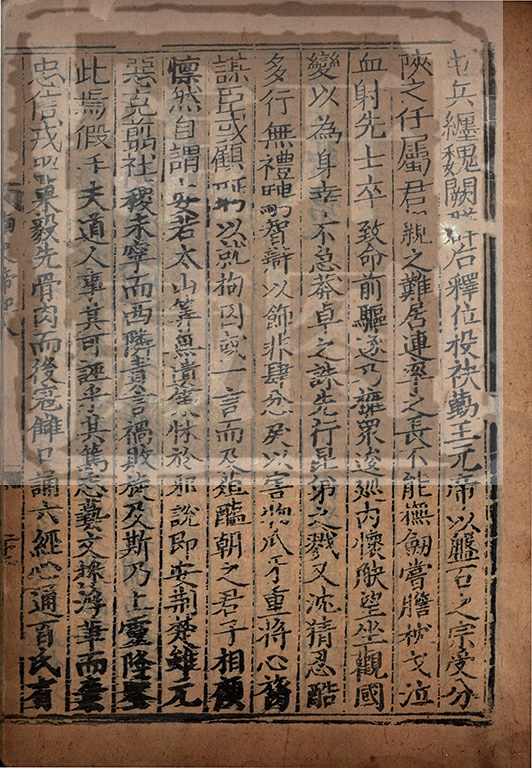 兵纏魏闕群后釋位投袂勤王元帝以盤石之宗受分
陝之任屬君親之難居連率之長不能撫劒嘗膽枕戈泣
血躬先士卒致命前驅遂乃擁眾逡巡内懷觖望坐觀國
變以為身幸不急莽卓之誅先行昆弟之戮又沈猜忍酷
多行無禮騁智辯以飾非肆忿戾以害物爪牙重將心膂
謀臣或顧眄以就拘囚或一言而及菹醢朝之君子相顧
懍然自謂安若太山筭無遺策怵於邪說即安荆楚雖元
惡克翦社稷未寧而西隣責言禍敗旋及斯乃上靈降鑒
此焉假手天道人事其可誣乎其篤志藝文採浮華而棄
忠信戎昭果毅先骨肉而後寇讎口誦六經心通百氏有